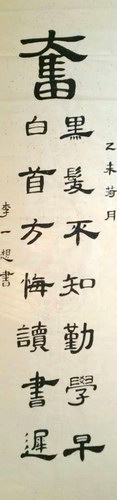 奮
乙未荷月
黑髮不知勤學早
白首方悔讀書遲
李一想書